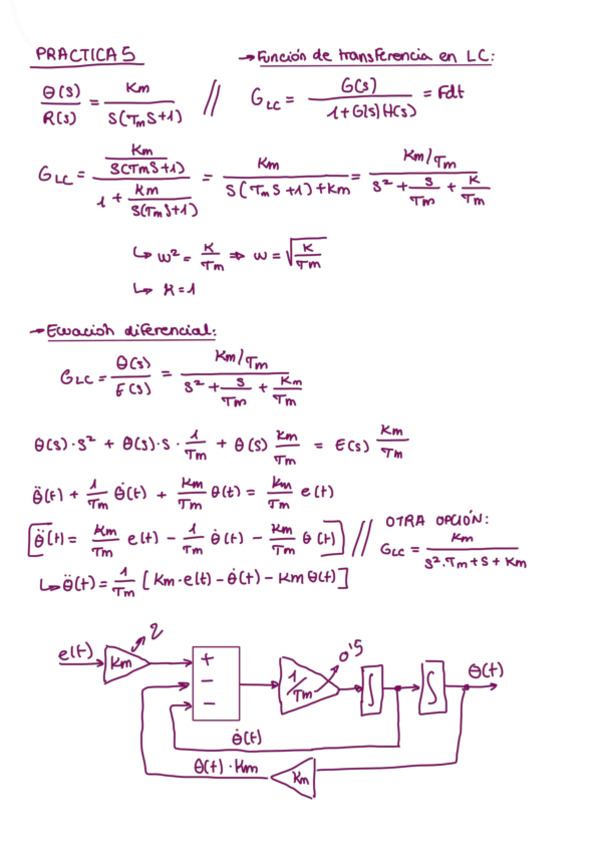 PRACTICA 5
→ Función de transferencia en LC:
Θ(s)/R(s) = Km/S(TmS+1) // G_LC = G(s)/1+G(s)H(s) = Fdt
G_LC = (Km/S(TmS+1))/(1+ Km/S(TmS+1)) = Km/S(TmS+1)+Km = (Km/Tm)/(S² + S/Tm + K/Tm)
↳ w² = K/Tm ⇒ w = √(K/Tm)
↳ K=1
→ Ecuación diferencial:
G_LC = Θ(s)/E(s) = (Km/Tm)/(S² + S/Tm + Km/Tm)
Θ(s)·S² + Θ(s)·S · 1/Tm + Θ(s) Km/Tm = E(s) Km/Tm
Θ̈(t) + 1/Tm Θ̇(t) + Km/Tm Θ(t) = Km/Tm e(t)
[Θ̈(t) = Km/Tm e(t) - 1/Tm Θ̇(t) - Km/Tm Θ(t)] // OTRA OPCIÓN: G_LC = Km/S²·Tm+S+Km
↳ Θ̈(t) = 1/Tm [Km·e(t) - Θ̇(t) - Km Θ(t)]
e(t)
Km
2
+
-
-
1/Tm
0'5
∫
∫
Θ(t)
Θ̇(t)
Θ(t)·Km
Km